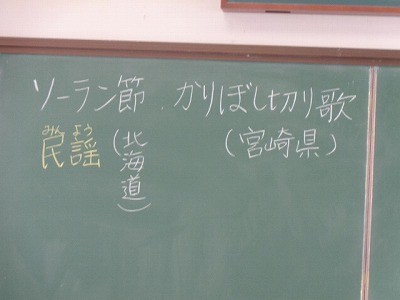 ソーラン節 かりぼし切り歌
民謡 (北海道) (宮崎県)
みんよう